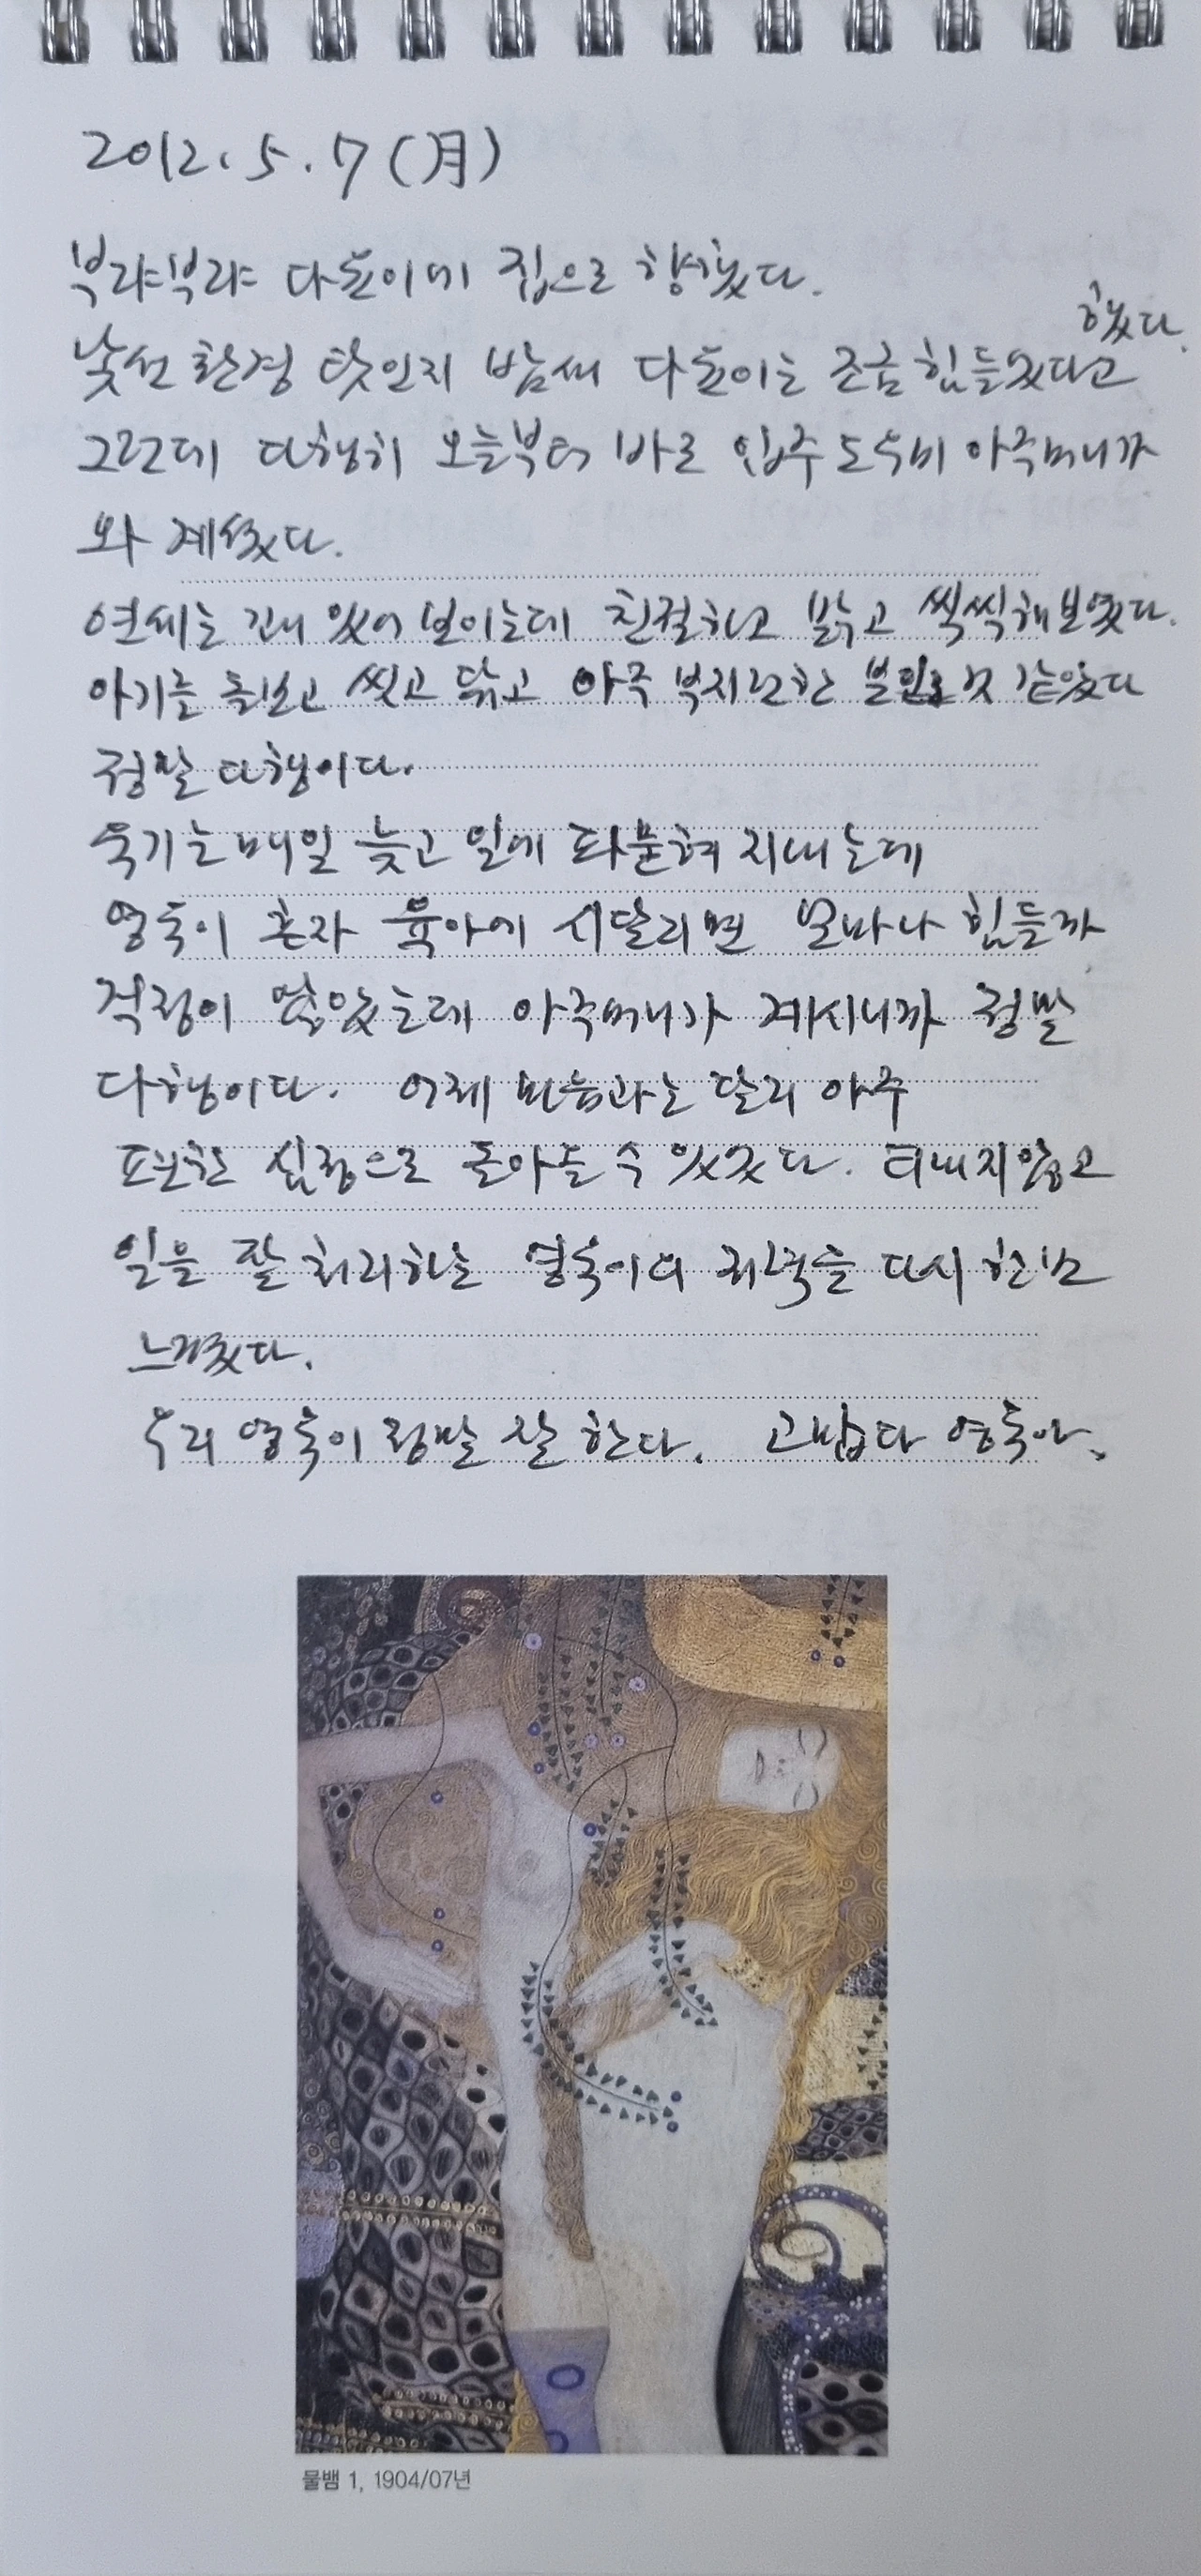 2012. 5. 7 (月)
부랴부랴 다윤이네 집으로 향했다.
낯선 환경 탓인지 밤새 다윤이는 조금 힘들었다고 했다.
그런데 다행히 오늘부터 바로 입주 도우미 아주머니가
와 계셨다.
연세는 꽤 있어 보이는데 친절하고 밝고 씩씩해 보였다.
아기를 돌보고 씻고 닦고 아주 부지런한 분인 것 같았다
정말 다행이다.
욱기는 매일 늦고 일에 파묻혀 지내는데
영숙이 혼자 육아에 시달리면 얼마나 힘들까
걱정이 많았는데 아주머니가 계시니까 정말
다행이다. 어제 마음과는 달리 아주
편한 심정으로 돌아올 수 있었다. 티내지 않고
일을 잘 처리하는 영숙이의 저력을 다시 한번
느꼈다.
우리 영숙이 정말 잘 한다. 고맙다 영숙아.
물뱀 1, 1904/07년